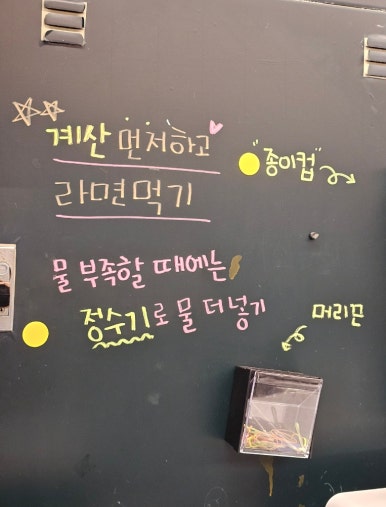 계산 먼저하고
라면먹기
"종이컵"
물 부족할 때에는
정수기로 물 더 넣기
머리끈